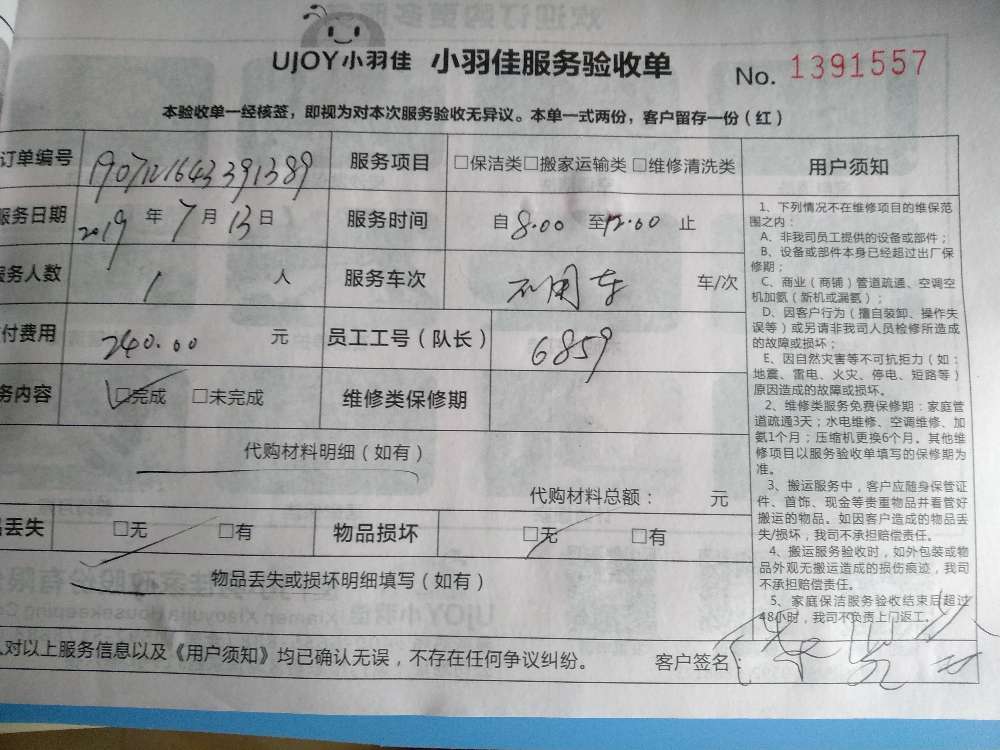 UJOY小羽佳 小羽佳服务验收单 No. 1391557
本验收单一经核签，即视为对本次服务验收无异议。本单一式两份，客户留存一份（红）
订单编号 190712164339389 服务项目 □保洁类□搬家运输类 □维修清洗类 用户须知
服务日期 2019 年 7 月 13 日 服务时间 自 8.00 至 12.00 止
服务人数 1 人 服务车次 不用车 车/次
付费用 240.00 元 员工工号（队长） 6859
务内容 □完成 □未完成 维修类保修期
代购材料明细（如有）
代购材料总额： 元
品丢失 □无 □有 物品损坏 □无 □有
物品丢失或损坏明细填写（如有）
人对以上服务信息以及《用户须知》均已确认无误，不存在任何争议纠纷。 客户签名：
1、下列情况不在维修项目的维保范
围之内：
A、非我司员工提供的设备或部件；
B、设备或部件本身已经超过出厂保
修期；
C、商业（商铺）管道疏通、空调空
机加氨（新机或漏氨）；
D、因客户行为（擅自装卸、操作失
误等）或另请非我司人员检修所造成
的故障或损坏；
E、因自然灾害等不可抗拒力（如：
地震、雷电、火灾、停电、短路等）
原因造成的故障或损坏。
2、维修类服务免费保修期：家庭管
道疏通3天；水电维修、空调维修、加
氨1个月；压缩机更换6个月。其他维
修项目以服务验收单填写的保修期为
准。
3、搬运服务中，客户应随身保管证
件、首饰、现金等贵重物品并看管好
搬运的物品。如因客户造成的物品丢
失/损坏，我司不承担赔偿责任。
4、搬运服务验收时，如外包装或物
品外观无搬运造成的损伤痕迹，我司
不承担赔偿责任。
5、家庭保洁服务验收结束后超过
48小时，我司不负责上门返工。